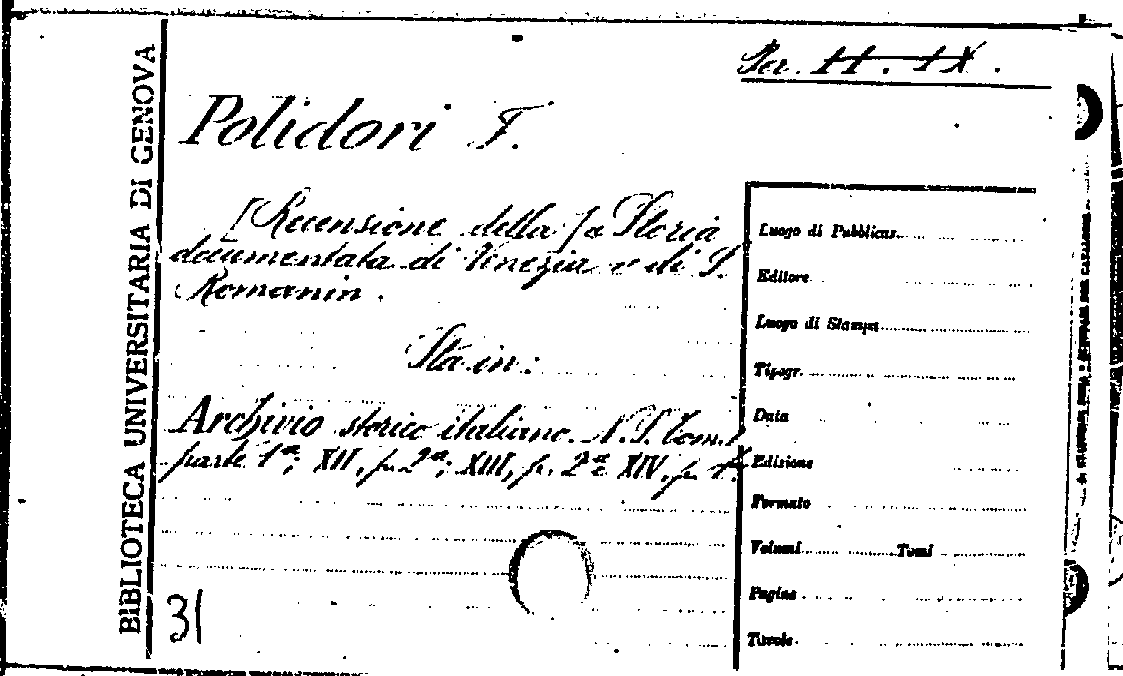 Per. 11. IX.
BIBLIOTECA UNIVERSITARIA DI GENOVA
Polidori F.
[Recensione della] a Storia
documentata di Venezia di S.
Romanin.
Sta in:
Archivio storico italiano. N.S. Tom.
parte 1ª; XII, p. 2ª; XIII, p. 2ª XIV, p. 1ª.
31
Luogo di Pubblicaz.
Editore
Luogo di Stampa
Tipogr.
Data
Edizione
Formato
Volumi Tomi
Pagine
Tavole